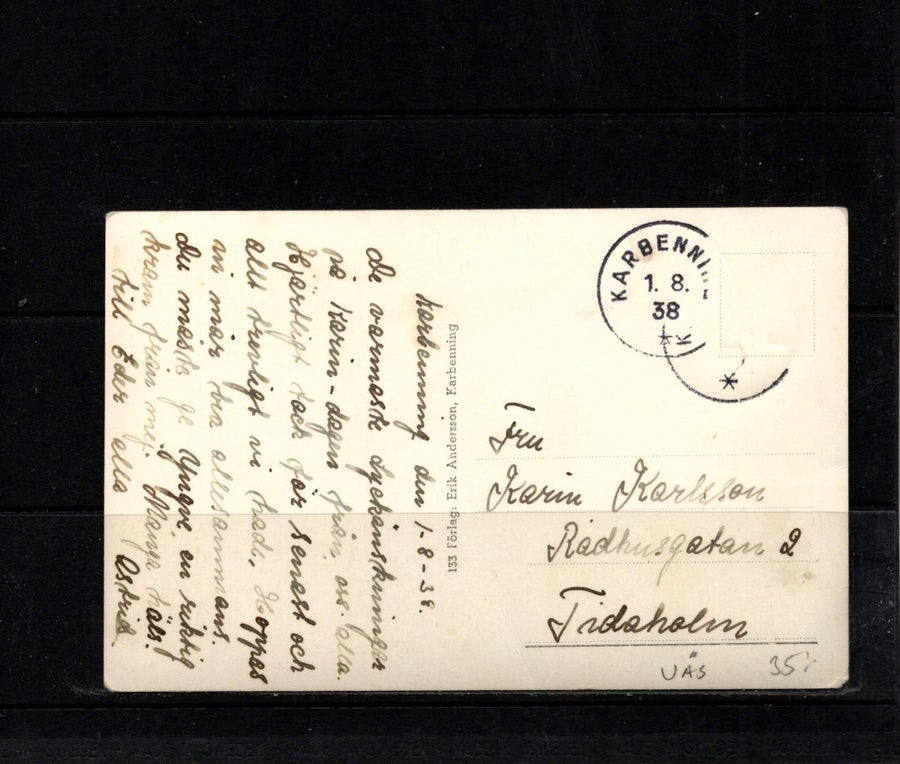 Karbenning den 1-8-38.
De varmaste lyckönskningar
på Karin-dagen från oss alla.
Hjärtligt tack för senast och
allt trevligt vi hade. Hoppas
ni mår bra allesammans.
Du måste ge Yngve en riktig
kram från mig. Många häls.
till Eder alla Astrid
133 Förlag: Erik Andersson, Karbenning
KARBENNI
1. 8.
38
K
Fru
Karin Karlsson
Rådhusgatan 2
Tidaholm
VÄS 35:-